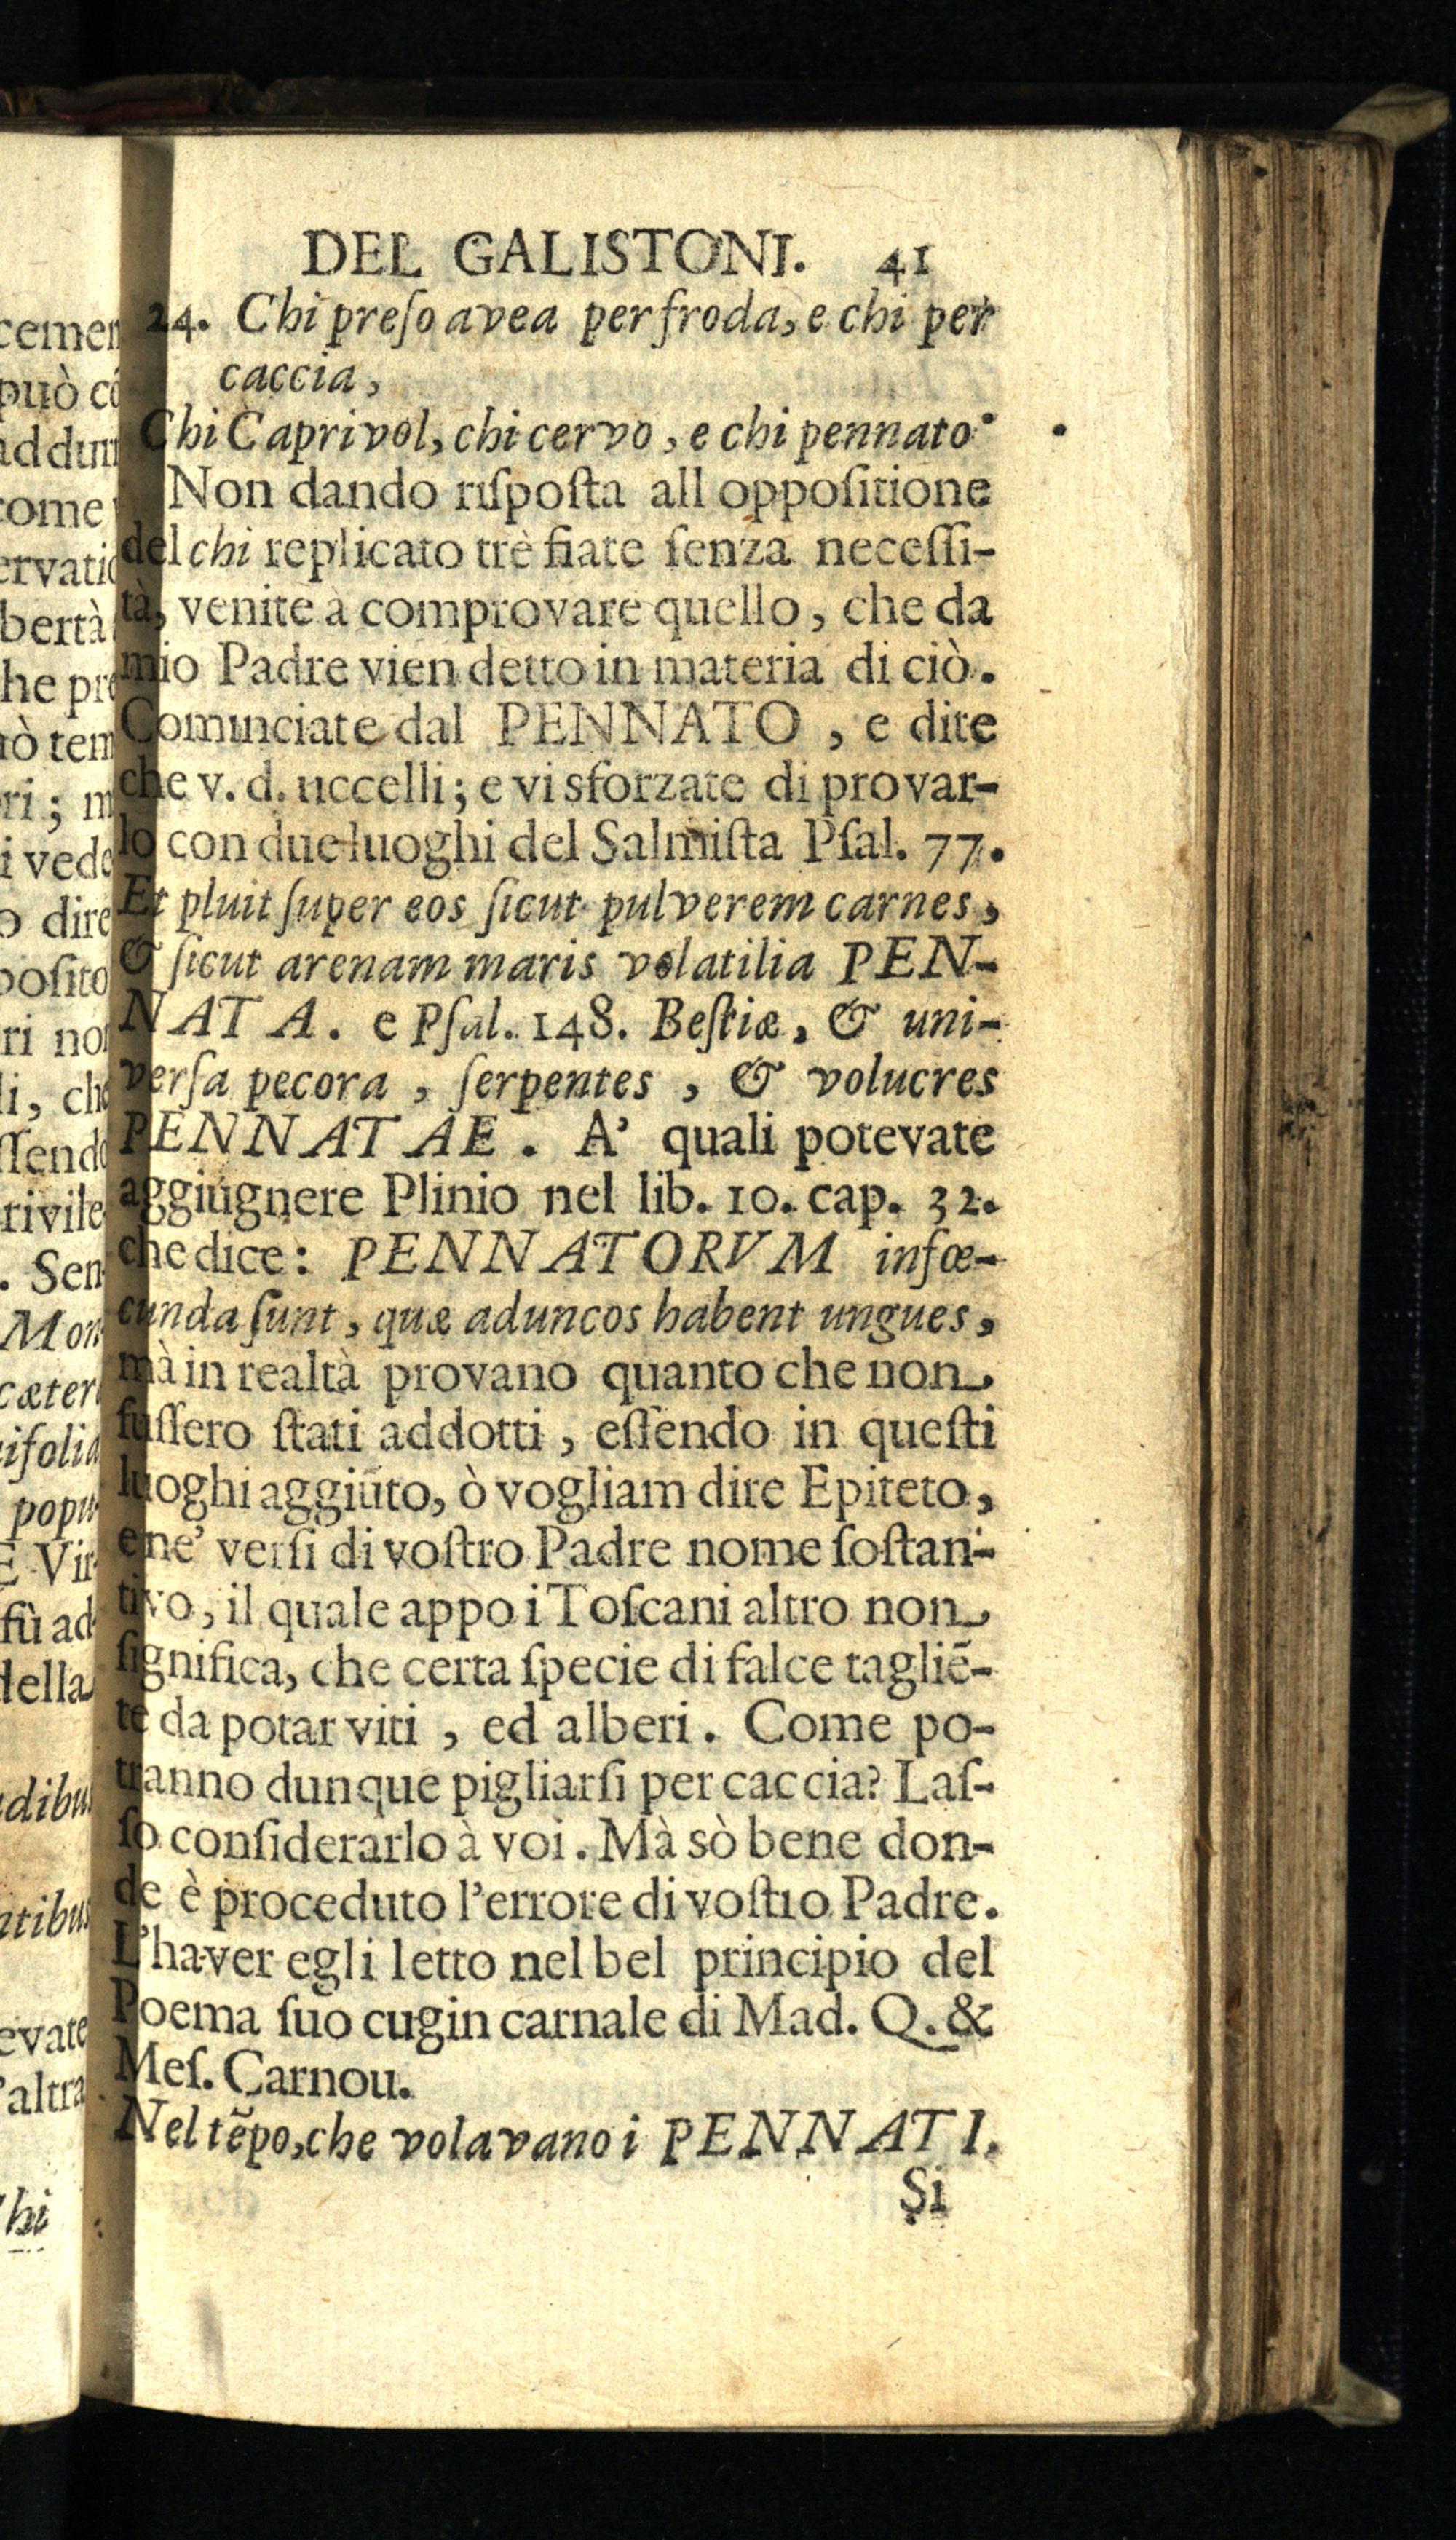 DEL GALISTONI. 41
24. Chi preſo avea per froda, e chi per
caccia,
Chi Caprivol, chi cervo, e chi pennato
Non dando riſpoſta all oppoſitione
del chi replicato trè fiate ſenza neceſſi-
tà, venite à comprovare quello, che da
mio Padre vien detto in materia di ciò.
Cominciate dal PENNATO, e dite
che v. d. uccelli; e vi sforzate di provar-
lo con due luoghi del Salmiſta Pſal. 77.
Et pluit ſuper eos ſicut pulverem carnes,
& ſicut arenam maris volatilia PEN-
NATA. e Pſal. 148. Beſtiæ, & uni-
verſa pecora, ſerpentes, & volucres
PENNATAE. A' quali potevate
aggiugnere Plinio nel lib. 10. cap. 32.
che dice: PENNATORVM infœ-
cunda ſunt, quæ aduncos habent ungues,
mà in realtà provano quanto che non
fuſſero ſtati addotti, eſſendo in queſti
luoghi aggiūto, ò vogliam dire Epiteto,
e ne' verſi di voſtro Padre nome ſoſtan-
tivo, il quale appo i Toſcani altro non
ſignifica, che certa ſpecie di falce tagliē-
te da potar viti, ed alberi. Come po-
tranno dunque pigliarſi per caccia? Laſ-
ſo conſiderarlo à voi. Mà sò bene don-
de è proceduto l'errore di voſtro Padre.
L'haver egli letto nel bel principio del
Poema ſuo cugin carnale di Mad. Q. &
Meſ. Carnou.
Nel tēpo, che volavano i PENNATI.
Si
cemen
può cō
ome
ervatio
bertà
he pre
ri; m
i vede
o dire
poſito
ri non
li, che
ſſendo
rivile
. Sen
Mon
cæteri
ifolia
popu-
E Vir-
fù ad-
della
dibus
ntibus
evate
l'altra
Chi